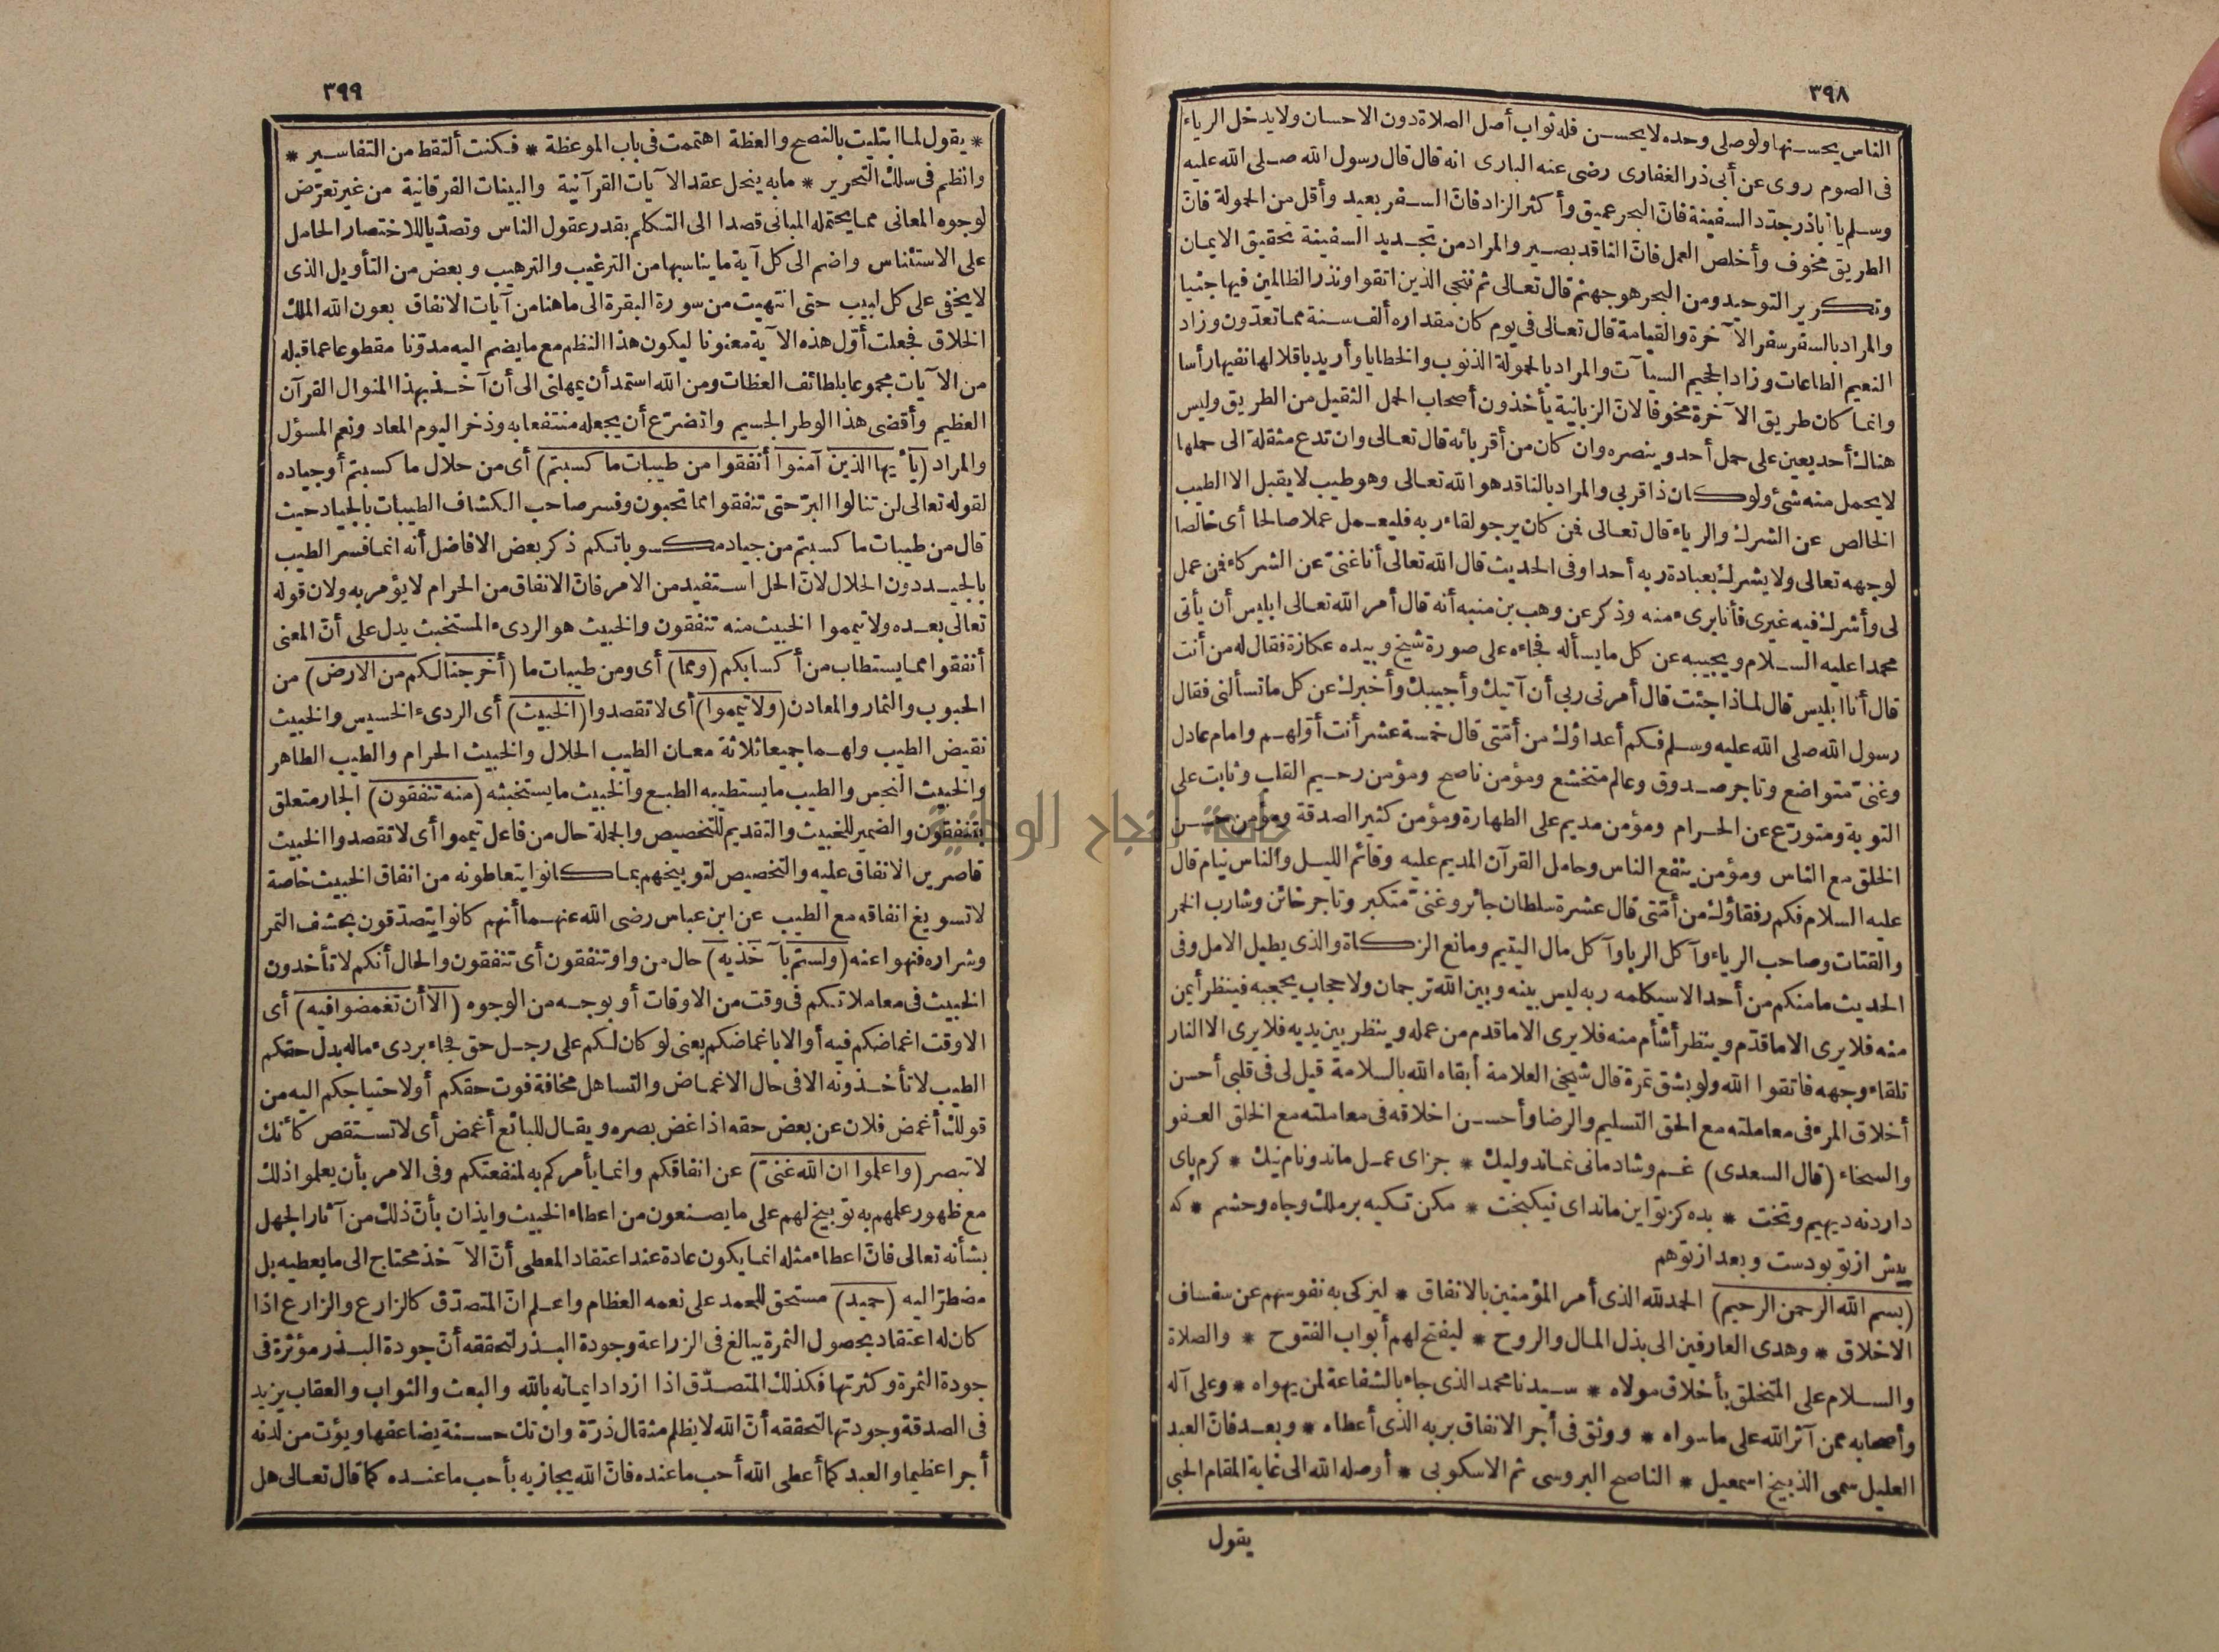 ٣٩٨
الناس يحسنها ولو صلى وحده لا يحسن فله ثواب أصل الصلاة دون الاحسان ولا يدخل الرياء
فى الصوم روى عن أبى ذر الغفارى رضى عنه البارى انه قال قال رسول الله صلى الله عليه
وسلم يا أباذر جدّد السفينة فانّ البحر عميق وأكثر الزاد فانّ السفر بعيد وأقل من الحمولة فانّ
الطريق مخوف وأخلص العمل فانّ الناقد بصير والمراد من تجديد السفينة تحقيق الايمان
وتكرير التوحيد ومن البحر هو جهنم قال تعالى ثم ننجى الذين اتقوا ونذر الظالمين فيها جثيا
والمراد بالسفر سفر الآخرة والقيامة قال تعالى فى يوم كان مقداره ألف سنة مما تعدّون وزاد
النعيم الطاعات وزاد الجحيم السيآت والمراد بالحمولة الذنوب والخطايا وأريد باقلالها نفيها رأسا
وانما كان طريق الآخرة مخوفا لانّ الزبانية يأخذون أصحاب الحمل الثقيل من الطريق وليس
هناك أحد يعين على حمل أحد وينصره وان كان من أقربائه قال تعالى وان تدع مثقلة الى حملها
لا يحمل منه شئ ولو كان ذا قربى والمراد بالناقد هو الله تعالى وهو طيب لا يقبل الا الطيب
الخالص عن الشرك والرياء قال تعالى فمن كان يرجو لقاء ربه فليعمل عملا صالحا أى خالصا
لوجهه تعالى ولا يشرك بعبادة ربه أحدا وفى الحديث قال الله تعالى أنا غنىّ عن الشركاء فمن عمل
لى وأشرك فيه غيرى فأنا برىء منه وذكر عن وهب بن منبه أنه قال أمر الله تعالى ابليس أن يأتى
محمدا عليه السلام ويجيبه عن كل ما يسأله فجاءه على صورة شيخ وبيده عكازة فقال له من أنت
قال أنا ابليس قال لماذا جئت قال أمرنى ربى أن آتيك وأجيبك وأخبرك عن كل ما تسألنى فقال
رسول الله صلى الله عليه وسلم فكم أعداؤك من أمّتى قال خمسة عشر أنت أوّلهم وامام عادل
وغنىّ متواضع وتاجر صدوق وعالم متخشع ومؤمن ناصح ومؤمن رحيم القلب وثابت على
التوبة ومتورّع عن الحرام ومؤمن مديم على الطهارة ومؤمن كثير الصدقة ومؤمن حسن
الخلق مع الناس ومؤمن ينفع الناس وحامل القرآن المديم عليه وقائم الليل والناس نيام قال
عليه السلام فكم رفقاؤك من أمّتى قال عشرة سلطان جائر وغنىّ متكبر وتاجر خائن وشارب الخمر
والقتات وصاحب الرياء وآكل الربا وآكل مال اليتيم ومانع الزكاة والذى يطيل الامل وفى
الحديث ما منكم من أحد الا سيكلمه ربه ليس بينه وبين الله ترجمان ولا حجاب يحجبه فينظر أيمن
منه فلا يرى الا ما قدّم وينظر أشأم منه فلا يرى الا ما قدم من عمله وينظر بين يديه فلا يرى الا النار
تلقاء وجهه فاتقوا الله ولو بشق تمرة قال شيخى العلامة أبقاه الله بالسلامة قيل لى فى قلبى أحسن
أخلاق المرء فى معاملته مع الحق التسليم والرضا وأحسن اخلاقه فى معاملته مع الخلق العفو
والسخاء (قال السعدى) غم وشادمانى نماند وليك * جزاى عمل ماند ونام نيك * كرم پاى
دارد نه ديهيم وتخت * بده كز تو اين ماند اى نيكبخت * مكن تكيه بر ملك وجاه وحشم * كه
پيش از تو بودست وبعد از تو هم
(بسم الله الرحمن الرحيم) الحمد لله الذى أمر المؤمنين بالانفاق * ليزكى به نفوسهم عن سفساف
الاخلاق * وهدى العارفين الى بذل المال والروح * ليفتح لهم أبواب الفتوح * والصلاة
والسلام على المتخلق بأخلاق مولاه * سيدنا محمد الذى جاء بالشفاعة لمن يهواه * وعلى آله
وأصحابه ممن آثر الله على ما سواه * ووثق فى أجر الانفاق بربه الذى أعطاه * وبعد فانّ العبد
العليل سمى الذبيح اسمعيل * الناصح البروسى ثم الاسكوبى * أوصله الله الى غاية المقام الحبى
يقول
٣٩٩
* يقول لما ابتليت بالنصح والعظة اهتممت فى باب الموعظة * فكنت ألتقط من التفاسير *
وانظم فى سلك التحرير * ما به ينحل عقد الآيات القرآنية والبينات الفرقانية من غير تعرّض
لوجوه المعانى مما يحتمله المبانى قصدا الى التكلم بقدر عقول الناس وتصدّيا للاختصار الحامل
على الاستئناس واضم الى كل آية ما يناسبها من الترغيب والترهيب وبعض من التأويل الذى
لا يخفى على كل لبيب حتى انتهيت من سورة البقرة الى ما هنا من آيات الانفاق بعون الله الملك
الخلاق فجعلت أوّل هذه الآية معنونا ليكون هذا النظم مع ما يضم اليه مدوّنا مقطوعا عما قبله
من الآيات مجموعا بلطائف العظات ومن الله استمد أن يمهلنى الى أن آخذ بهذا المنوال القرآن
العظيم وأقضى هذا الوطر الجسيم واتضرّع أن يجعله منتفعا به وذخر اليوم المعاد ونعم المسؤل
والمراد (يا أيها الذين آمنوا أنفقوا من طيبات ما كسبتم) أى من حلال ما كسبتم أو جياده
لقوله تعالى لن تنالوا البرّ حتى تنفقوا مما تحبون وفسر صاحب الكشاف الطيبات بالجياد حيث
قال من طيبات ما كسبتم من جياد مكسوباتكم ذكر بعض الافاضل أنه انما فسر الطيب
بالجيد دون الحلال لانّ الحل استفيد من الامر فانّ الانفاق من الحرام لا يؤمر به ولان قوله
تعالى بعده ولا تيمموا الخبيث منه تنفقون والخبيث هو الردىء المستخبث يدل على أنّ المعنى
أنفقوا مما يستطاب من أكسابكم (ومما) أى ومن طيبات ما (أخرجنا لكم من الارض) من
الحبوب والثمار والمعادن (ولا تيمموا) أى لا تقصدوا (الخبيث) أى الردىء الخسيس والخبيث
نقيض الطيب ولهما جميعا ثلاثة معان الطيب الحلال والخبيث الحرام والطيب الطاهر
والخبيث النجس والطيب ما يستطيبه الطبع والخبيث ما يستخبثه (منه تنفقون) الجار متعلق
بتنفقون والضمير للخبيث والتقديم للتخصيص والجملة حال من فاعل تيمموا أى لا تقصدوا الخبيث
قاصرين الانفاق عليه والتخصيص لتوبيخهم بما كانوا يتعاطونه من انفاق الخبيث خاصة
لا تسويغ انفاقه مع الطيب عن ابن عباس رضى الله عنهما أنهم كانوا يتصدّقون بحشف التمر
وشراره فنهوا عنه (ولستم بآخذيه) حال من واو تنفقون أى تنفقون والحال أنكم لا تأخذون
الخبيث فى معاملاتكم فى وقت من الاوقات أو بوجه من الوجوه (الا أن تغمضوا فيه) أى
الا وقت اغماضكم فيه أو الا باغماضكم يعنى لو كان لكم على رجل حق فجاء بردىء ماله بدل حقكم
الطيب لا تأخذونه الا فى حال الاغماض والتساهل مخافة فوت حقكم أو لاحتياجكم اليه من
قولك أغمض فلان عن بعض حقه اذا غض بصره ويقال للبائع أغمض أى لا تستقص كأنك
لا تبصر (واعلموا ان الله غنىّ) عن انفاقكم وانما يأمركم به لمنفعتكم وفى الامر بأن يعلموا ذلك
مع ظهور علمهم به توبيخ لهم على ما يصنعون من اعطاء الخبيث وايذان بأنّ ذلك من آثار الجهل
بشأنه تعالى فانّ اعطاء مثله انما يكون عادة عند اعتقاد المعطى أنّ الآخذ محتاج الى ما يعطيه بل
مضطرّ اليه (حميد) مستحق للحمد على نعمه العظام واعلم انّ المتصدّق كالزارع والزارع اذا
كان له اعتقاد بحصول الثمرة يبالغ فى الزراعة وجودة البذر لتحققه أنّ جودة البذر مؤثرة فى
جودة الثمرة وكثرتها فكذلك المتصدّق اذا ازداد ايمانه بالله والبعث والثواب والعقاب يزيد
فى الصدقة وجودتها لتحققه أنّ الله لا يظلم مثقال ذرّة وان تك حسنة يضاعفها ويؤت من لدنه
أجرا عظيما والعبد كما أعطى الله أحب ما عنده فانّ الله يجازيه بأحب ما عنده كما قال تعالى هل
جامعة النجاح الوطنية